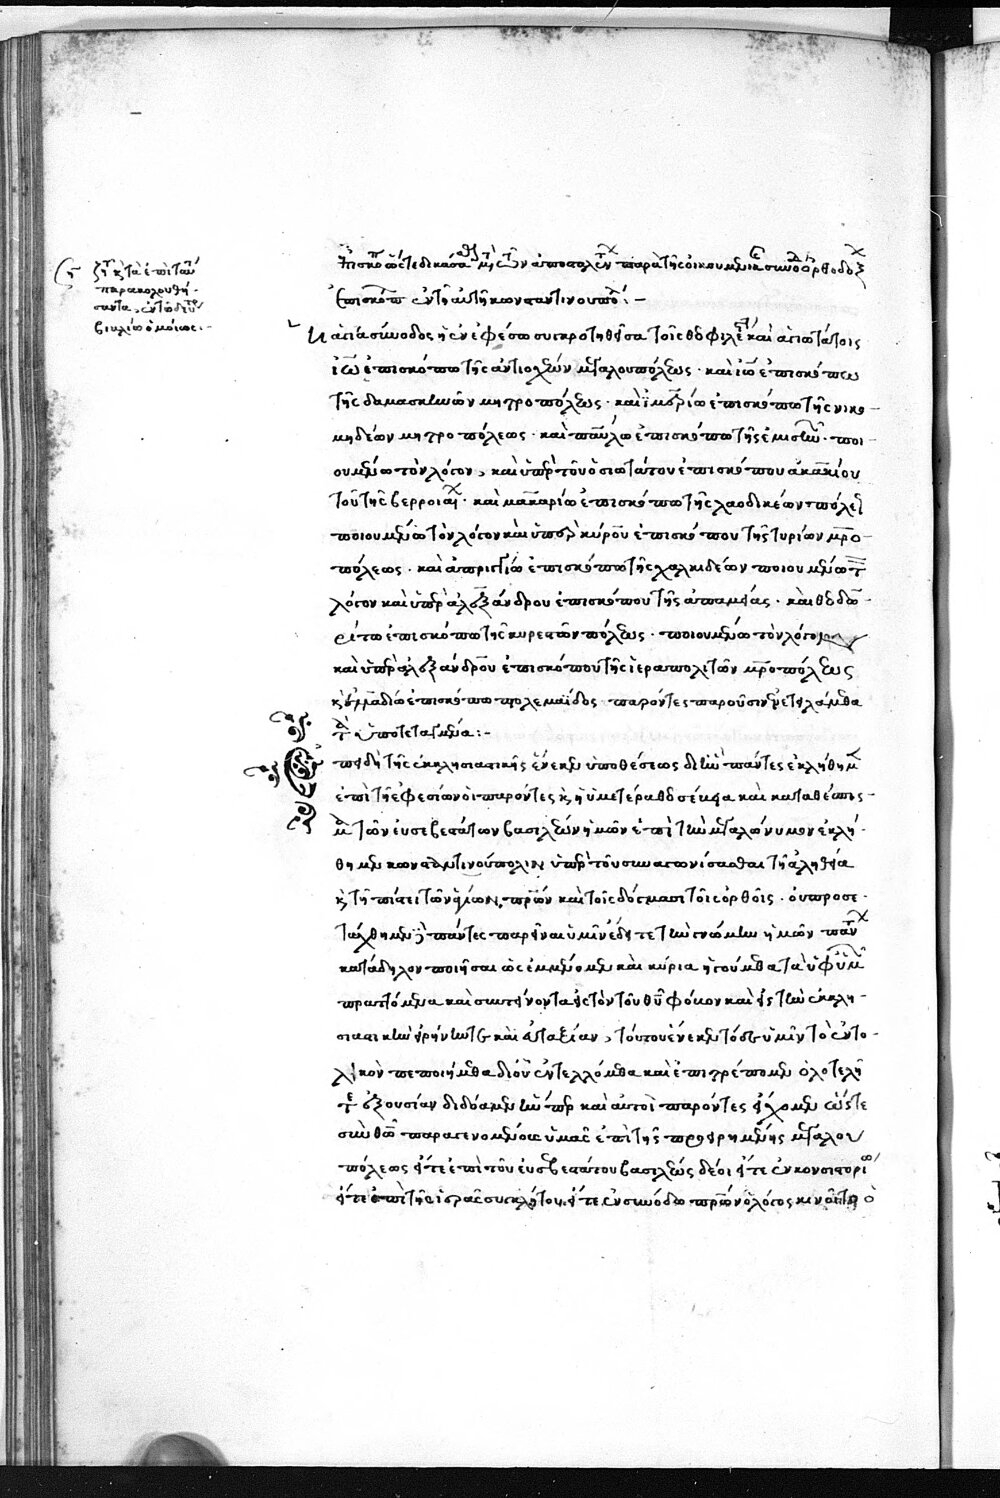 ζήτει καὶ τὰ ἐπὶ ταύτη
παρακολουθή-
σαντα, ἐν τῷ δευτέρῳ
βιβλίῳ ὁμοίως:-
ἐπισκόποις
ἐπισκόπων ἐν τῇ αὐτῇ κωνσταντινουπόλει:-
Ἡ ἁγία σύνοδος ἡ ἐν ἐφέσω συγκροτηθεῖσα τοῖς θεοφιλεστάτοις καὶ ἁγιωτάτοις
ἰωάννη ἐπισκόπω τῆς ἀντιοχέων μεγαλουπόλεως· καὶ ἰωάννη ἐπισκόπω
τῆς δαμασκηνῶν μητροπόλεως· καὶ ἱμερίω ἐπισκόπω τῆς νικο-
μηδέων μητροπόλεως· καὶ παύλω ἐπισκόπω τῆς ἐμισηνῶν· ποι-
ουμένω τὸν λόγον, καὶ ὑπὲρ τοῦ ὁσιωτάτου ἐπισκόπου ἀκακίου
τοῦ τῆς βερροιαίων· καὶ μακαρίω ἐπισκόπω τῆς λαοδικέων πόλεως
ποιουμένω τὸν λόγον καὶ ὑπὲρ κύρου ἐπισκόπου τῆς τυρίων μητρο-
πόλεως· καὶ ἀπριγγίω ἐπισκόπω τῆς χαλκιδέων ποιουμένω τὸν
λόγον καὶ ὑπὲρ ἀλεξάνδρου ἐπισκόπου τῆς ἀπαμείας· καὶ θεοδω-
ρίτω ἐπισκόπω τῆς κυρεστῶν πόλεως· ποιουμένω τὸν λόγον
καὶ ὑπὲρ ἀλεξάνδρου ἐπισκόπου τῆς ἱεραπολιτῶν μητροπόλεως
καὶ ἐπισκόπω πτολεμαΐδος παρόντες παροῦσιν ἐνετειλάμεθα
τὰ ὑποτεταγμένα:-
Ἐπειδὴ τῆς ἐκκλησιαστικῆς ἕνεκεν ὑποθέσεως δι' ἣν πάντες ἐκλήθημεν
ἐπὶ τῆς ἐφεσίων οἱ παρόντες καὶ ἡ ὑμετέρα θεοσέβεια καὶ κατὰ θέσπισ-
μα τῶν εὐσεβεστάτων βασιλέων ἡμῶν ἐπὶ τὴν μεγαλώνυμον ἐκλή-
θημεν κωνσταντινούπολιν ὑπὲρ τοῦ συναγωνίσασθαι τῆ ἀληθεία
καὶ τῆ πίστει τῶν ἁγίων πατέρων καὶ τοῖς δόγμασι τοῖς ὀρθοῖς· οὐ προσε-
τάχθημεν δὲ πάντες παρεῖναι ὑμῖν ἔδει τε τὴν γνώμην ἡμῶν πάντων
κατάδηλον ποιῆσαι ὡς ἐμμένομεν καὶ κύρια ἡγούμεθα τὰ ὑφ' ὑμῶν
πραττόμενα καὶ συντείνοντα εἰς τὸν τοῦ θεοῦ φόβον καὶ εἰς τὴν ἐκκλη-
σιαστικὴν εἰρήνην τε καὶ εὐταξίαν, τούτου ἕνεκεν τόδε ὑμῖν τὸ ἐντο-
λικὸν πεποιήμεθα δι' οὗ ἐντελλόμεθα καὶ ἐπιτρέπομεν ὁλοτελῆ
τὴν ἐξουσίαν διδόαμεν ἥνπερ καὶ αὐτοὶ παρόντες εἴχομεν ὥστε
σὺν θεῷ παραγενομένους ὑμᾶς ἐπὶ τῆς προειρημένης μεγαλου
πόλεως εἴτε ἐπὶ τοῦ εὐσεβεστάτου βασιλέως δέοι εἴτε ἐν κονσιστορίω
εἴτε ἐπὶ τῆς ἱερᾶς συγκλήτου, εἴτε ἐν συνόδω πατέρων ὁ λόγος κινοῖτο ὁ